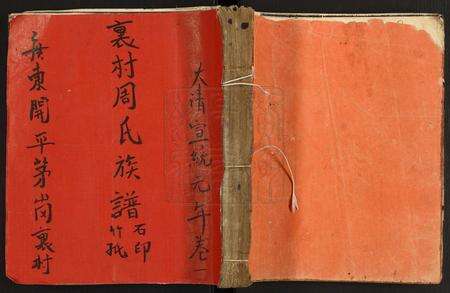 大清宣統元年卷一
裏村周氏族譜
石印
竹紙
廣東開平茅崗裏村